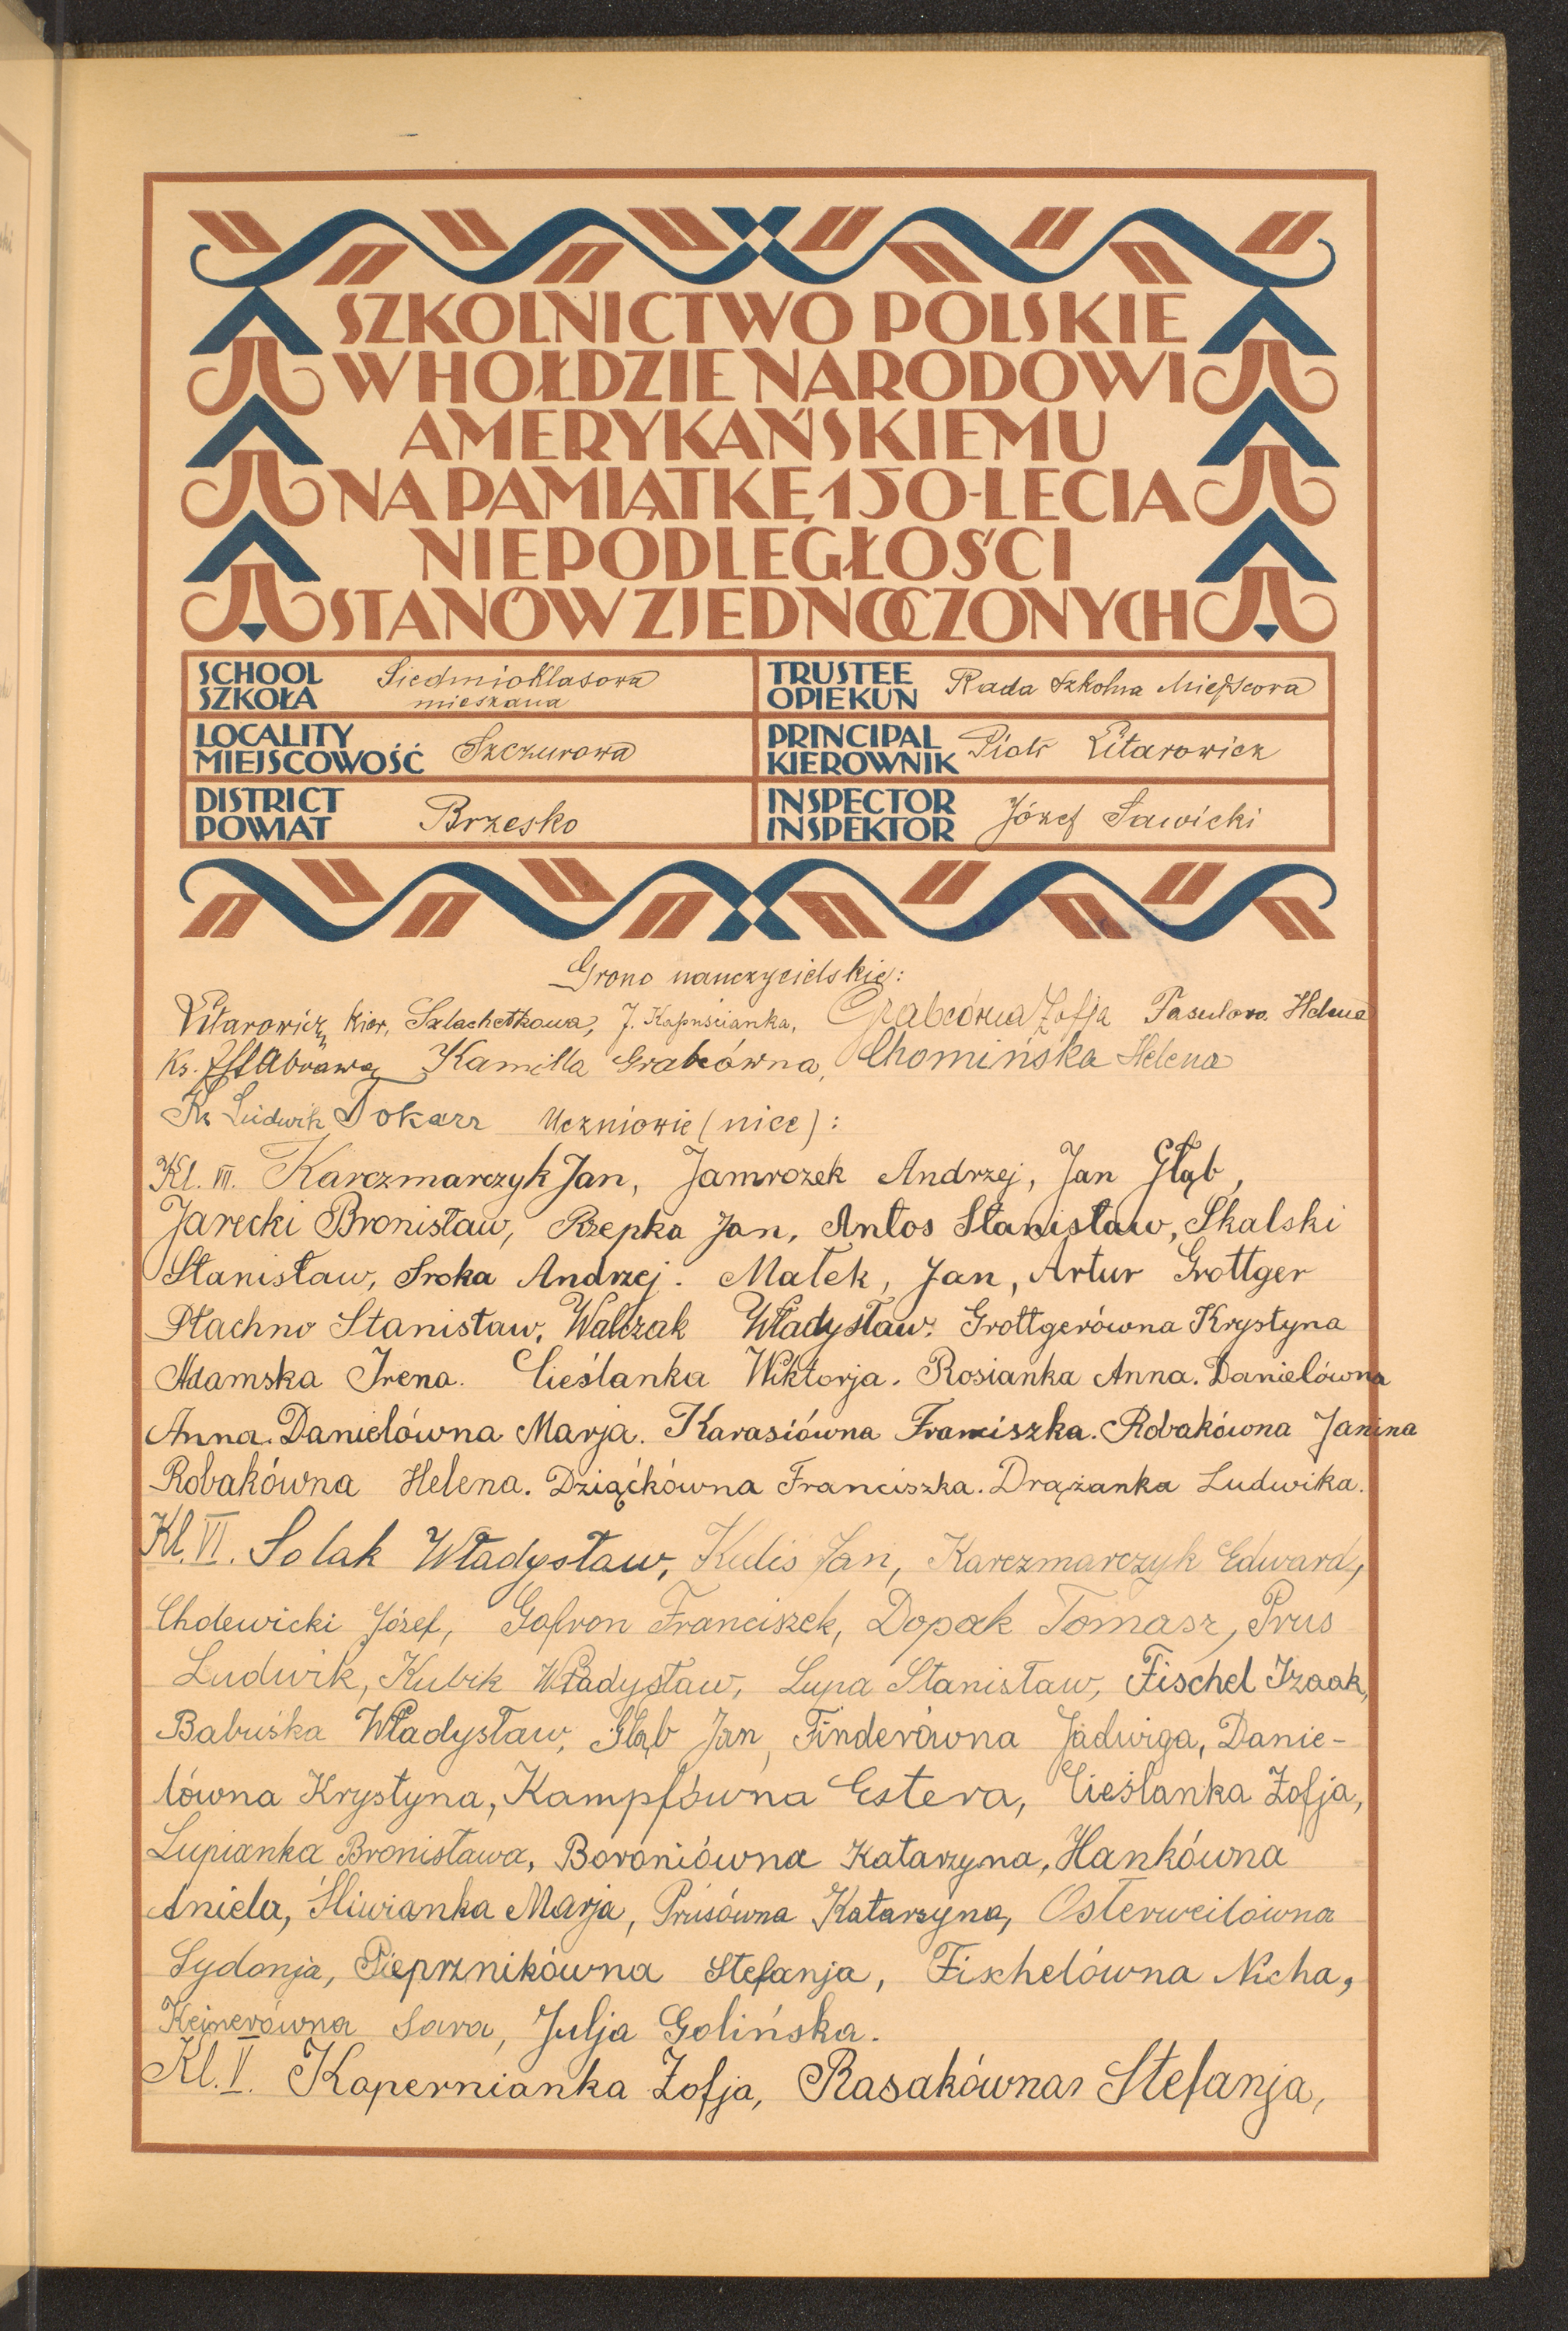 SZKOLNICTWO POLSKIE
W HOŁDZIE NARODOWI
AMERYKAŃSKIEMU
NA PAMIĄTKĘ 150-LECIA
NIEPODLEGŁOŚCI
STANÓW ZJEDNOCZONYCH
SCHOOL
SZKOŁA
Siedmioklasowa
mieszana
TRUSTEE
OPIEKUN
Rada Szkolna Miejscowa
LOCALITY
MIEJSCOWOŚĆ
Szczurowa
PRINCIPAL
KIEROWNIK
Piotr Litarowicz
DISTRICT
POWIAT
Brzesko
INSPECTOR
INSPEKTOR
Józef Sawicki
Grono nauczycielskie:
Litarowicz kier, Szlachetkowa, J. Kapuścianka, Grabcówna Zofja Helena
Ks. Kamilla Grabcówna, Chomińska Helena
Ks Ludwik Tokarz Uczniowie (nice):
Kl. VII. Karczmarczyk Jan, Jamrozek Andrzej, Jan Głąb,
Jarecki Bronisław, Rzepka Jan, Antos Stanisław, Skalski
Stanisław, Sroka Andrzej. Małek, Jan, Artur Grottger
Płachno Stanisław, Walczak Władysław. Grottgerówna Krystyna
Adamska Irena. Cieślanka Wiktorja. Rosianka Anna. Danielówna
Anna. Danielówna Marja. Karasiówna Franciszka. Robakówna Janina
Robakówna Helena. Dziąćkówna Franciszka. Drążanka Ludwika.
Kl. VI. Solak Władysław, Kulis Jan, Karczmarczyk Edward,
Chdewicki Józef, Gofron Franciszek, Dopak Tomasz, Prus
Ludwik, Kubik Władysław, Lupa Stanisław, Fischel Izaak,
Babuśka Władysław, Głąb Jan, Finderówna Jadwiga, Danie-
lówna Krystyna, Kampfówna Estera, Cieślanka Zofja,
Lupianka Bronisława, Boroniówna Katarzyna, Hankówna
Aniela, Śliwianka Marja, Prusówna Katarzyna, Osterweilówna
Sydonja, Pieprznikówna Stefanja, Fischelówna Nicha,
Kejnerówna Sara, Julja Golińska.
Kl. V. Kapernianka Zofja, Rasakówna Stefanja,